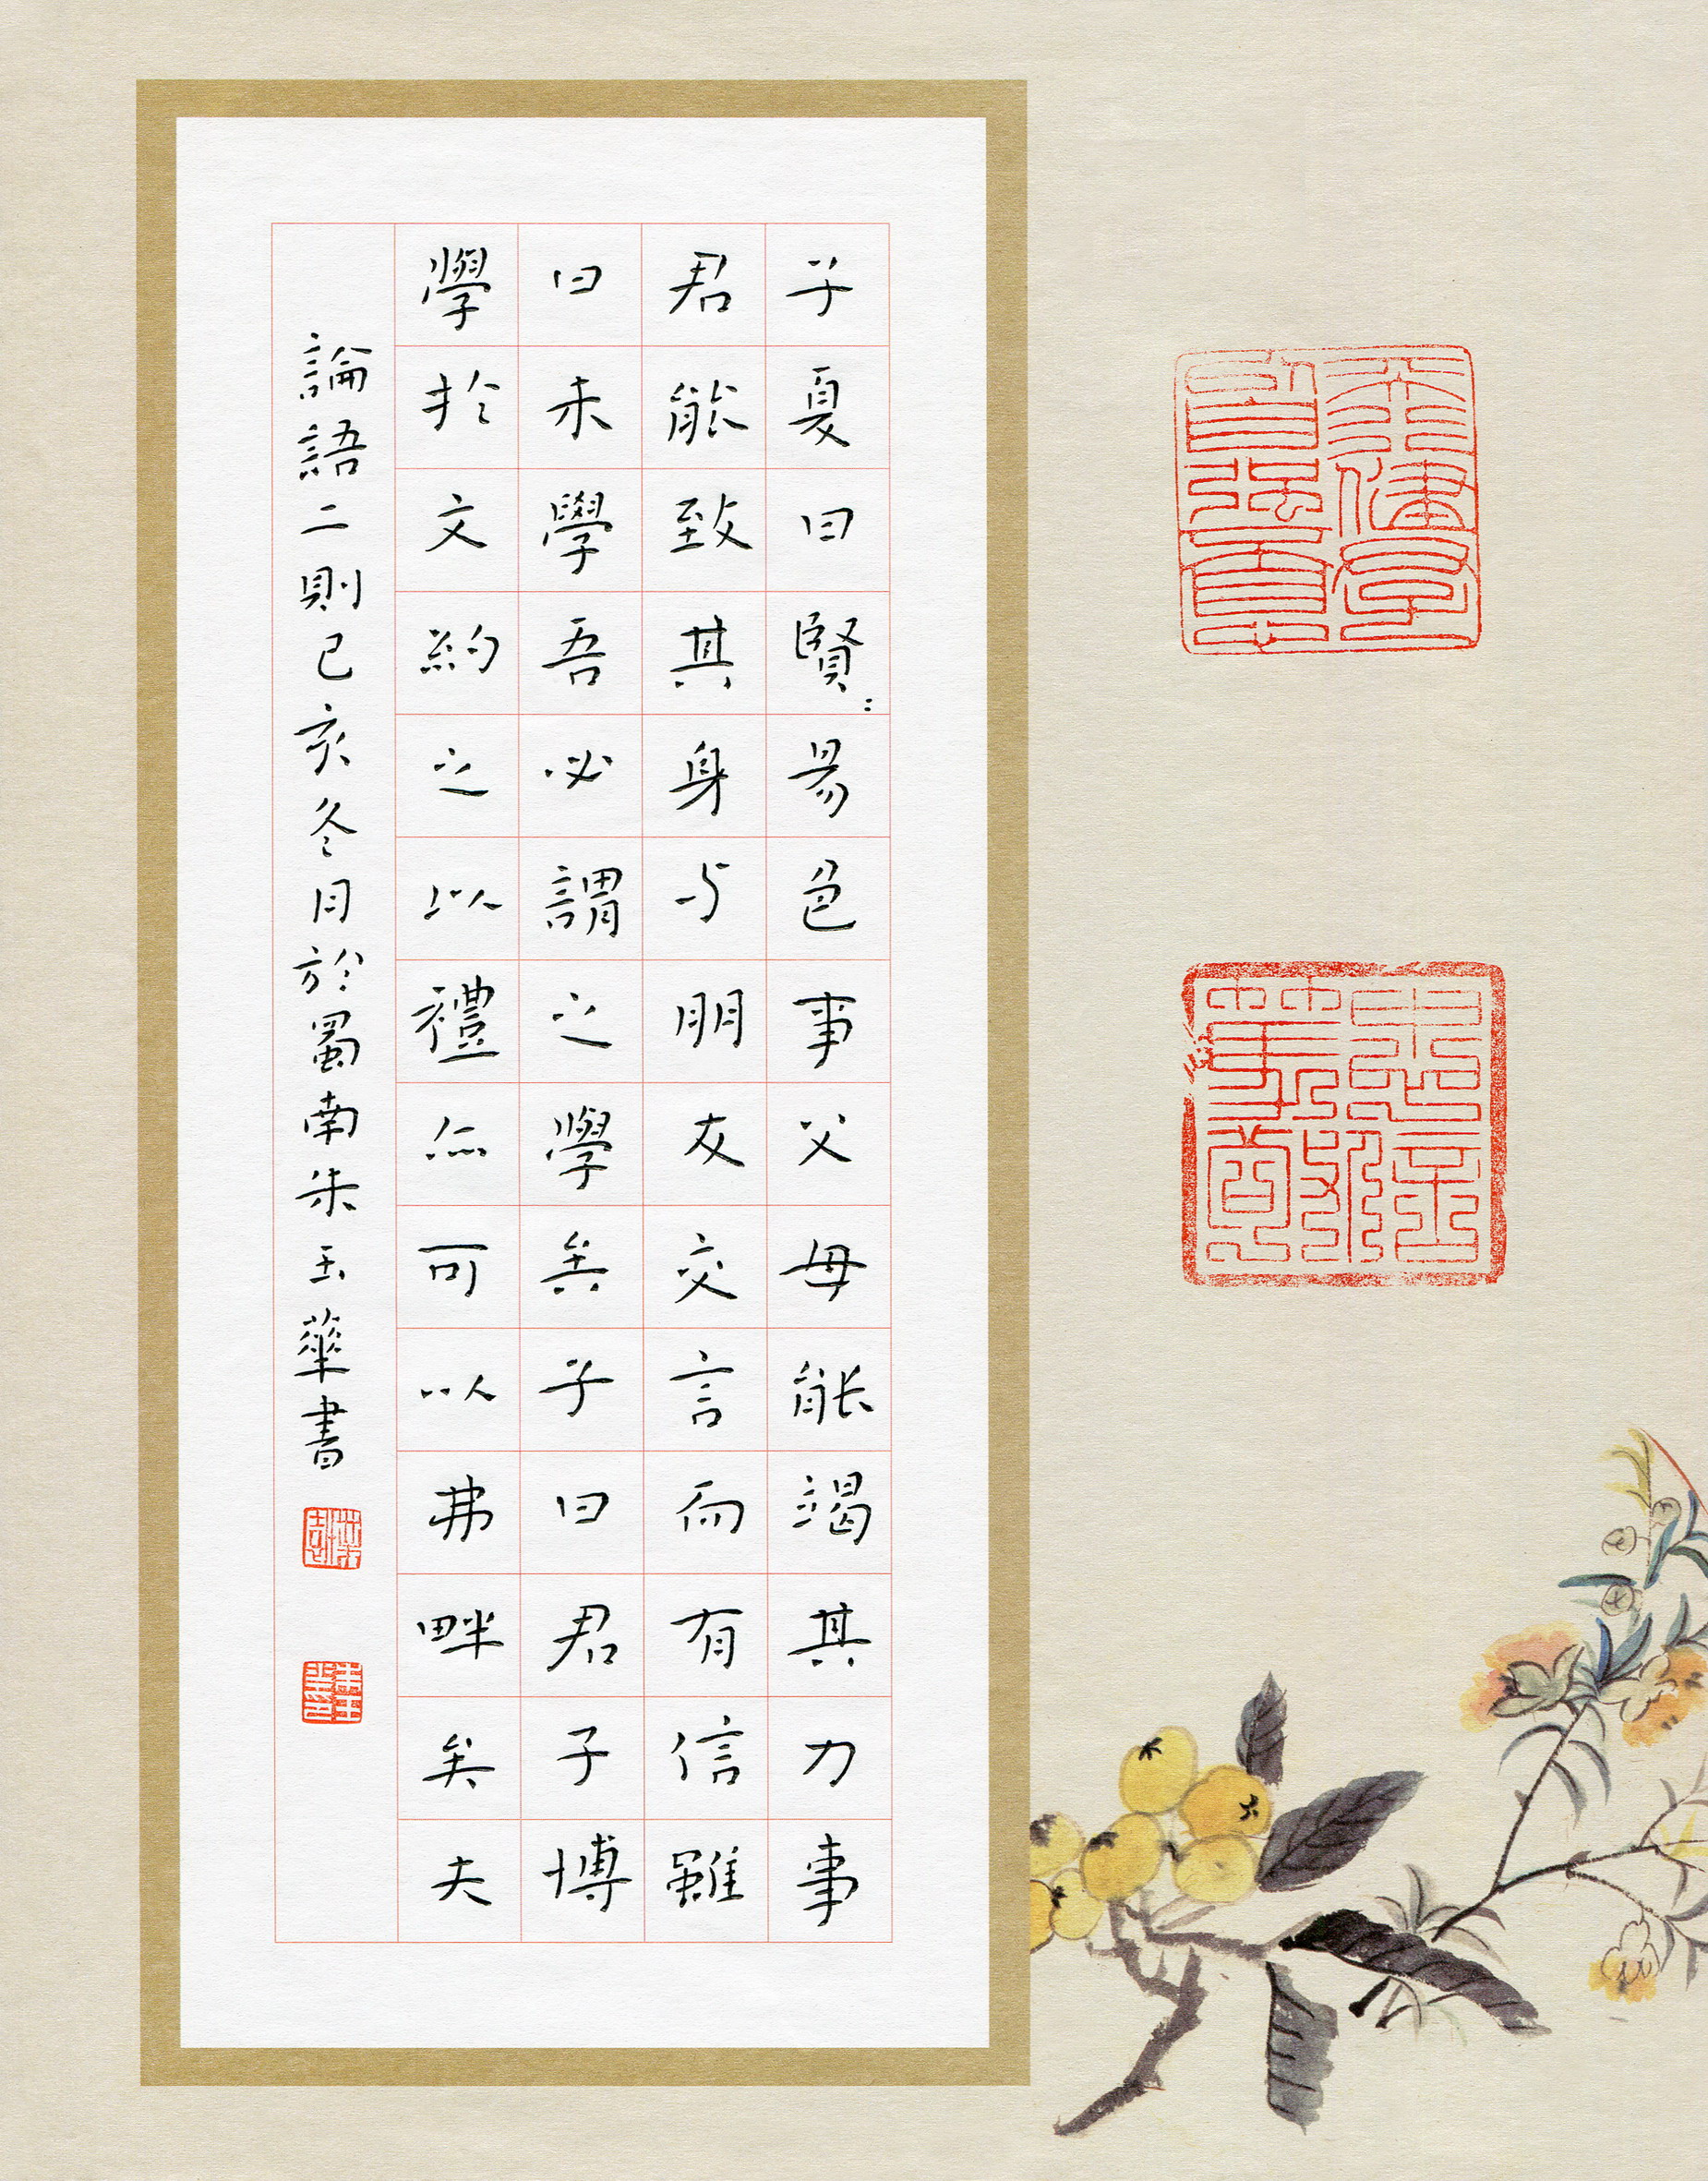 子夏曰賢〻易色事父母能竭其力事
君能致其身与朋友交言而有信雖
曰未學吾必謂之學矣子曰君子博
學於文約之以禮亦可以弗畔矣夫
論語二則己亥冬月於蜀南朱玉華書